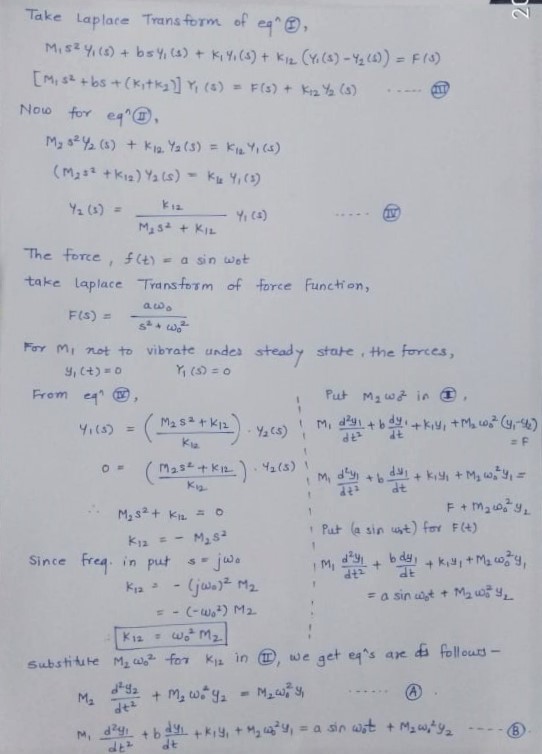 20
Take Laplace Transform of eqⁿ Ⓘ,
M₁s² Y₁(s) + bsY₁(s) + K₁Y₁(s) + K₁₂ (Y₁(s) - Y₂(s)) = F(s)
[M₁s² + bs + (K₁+K₂)] Y₁(s) = F(s) + K₁₂ Y₂(s) ----- (III)
Now for eqⁿ (II),
M₂s² Y₂(s) + K₁₂ Y₂(s) = K₁₂ Y₁(s)
(M₂s² + K₁₂) Y₂(s) = K₁₂ Y₁(s)
Y₂(s) = K₁₂ / (M₂s² + K₁₂) Y₁(s) ----- (IV)
The force, f(t) = a sin ω₀t
take Laplace Transform of force function,
F(s) = aω₀ / (s² + ω₀²)
For M₁ not to vibrate under steady state, the forces,
y₁(t) = 0 Y₁(s) = 0
From eqⁿ (IV),
Y₁(s) = ((M₂s² + K₁₂) / K₁₂) . Y₂(s)
0 = ((M₂s² + K₁₂) / K₁₂) . Y₂(s)
∴ M₂s² + K₁₂ = 0
K₁₂ = - M₂s²
Since freq. in put s = jω₀
K₁₂ = - (jω₀)² M₂
= - (-ω₀²) M₂
K₁₂ = ω₀² M₂
Put M₂ω₀² in (I),
M₁ d²y₁/dt² + b dy₁/dt + K₁y₁ + M₂ω₀² (y₁-y₂)
= F
M₁ d²y₁/dt² + b dy₁/dt + K₁y₁ + M₂ω₀²y₁ =
F + M₂ω₀²y₂
Put (a sin ω₀t) for F(t)
M₁ d²y₁/dt² + b dy₁/dt + K₁y₁ + M₂ω₀²y₁
= a sin ω₀t + M₂ω₀²y₂
substitute M₂ω₀² for K₁₂ in (II), we get eqⁿs are as follows -
M₂ d²y₂/dt² + M₂ω₀²y₂ = M₂ω₀²y₁ ------ (A).
M₁ d²y₁/dt² + b dy₁/dt + K₁y₁ + M₂ω₀²y₁ = a sin ω₀t + M₂ω₀²y₂ ---- (B)